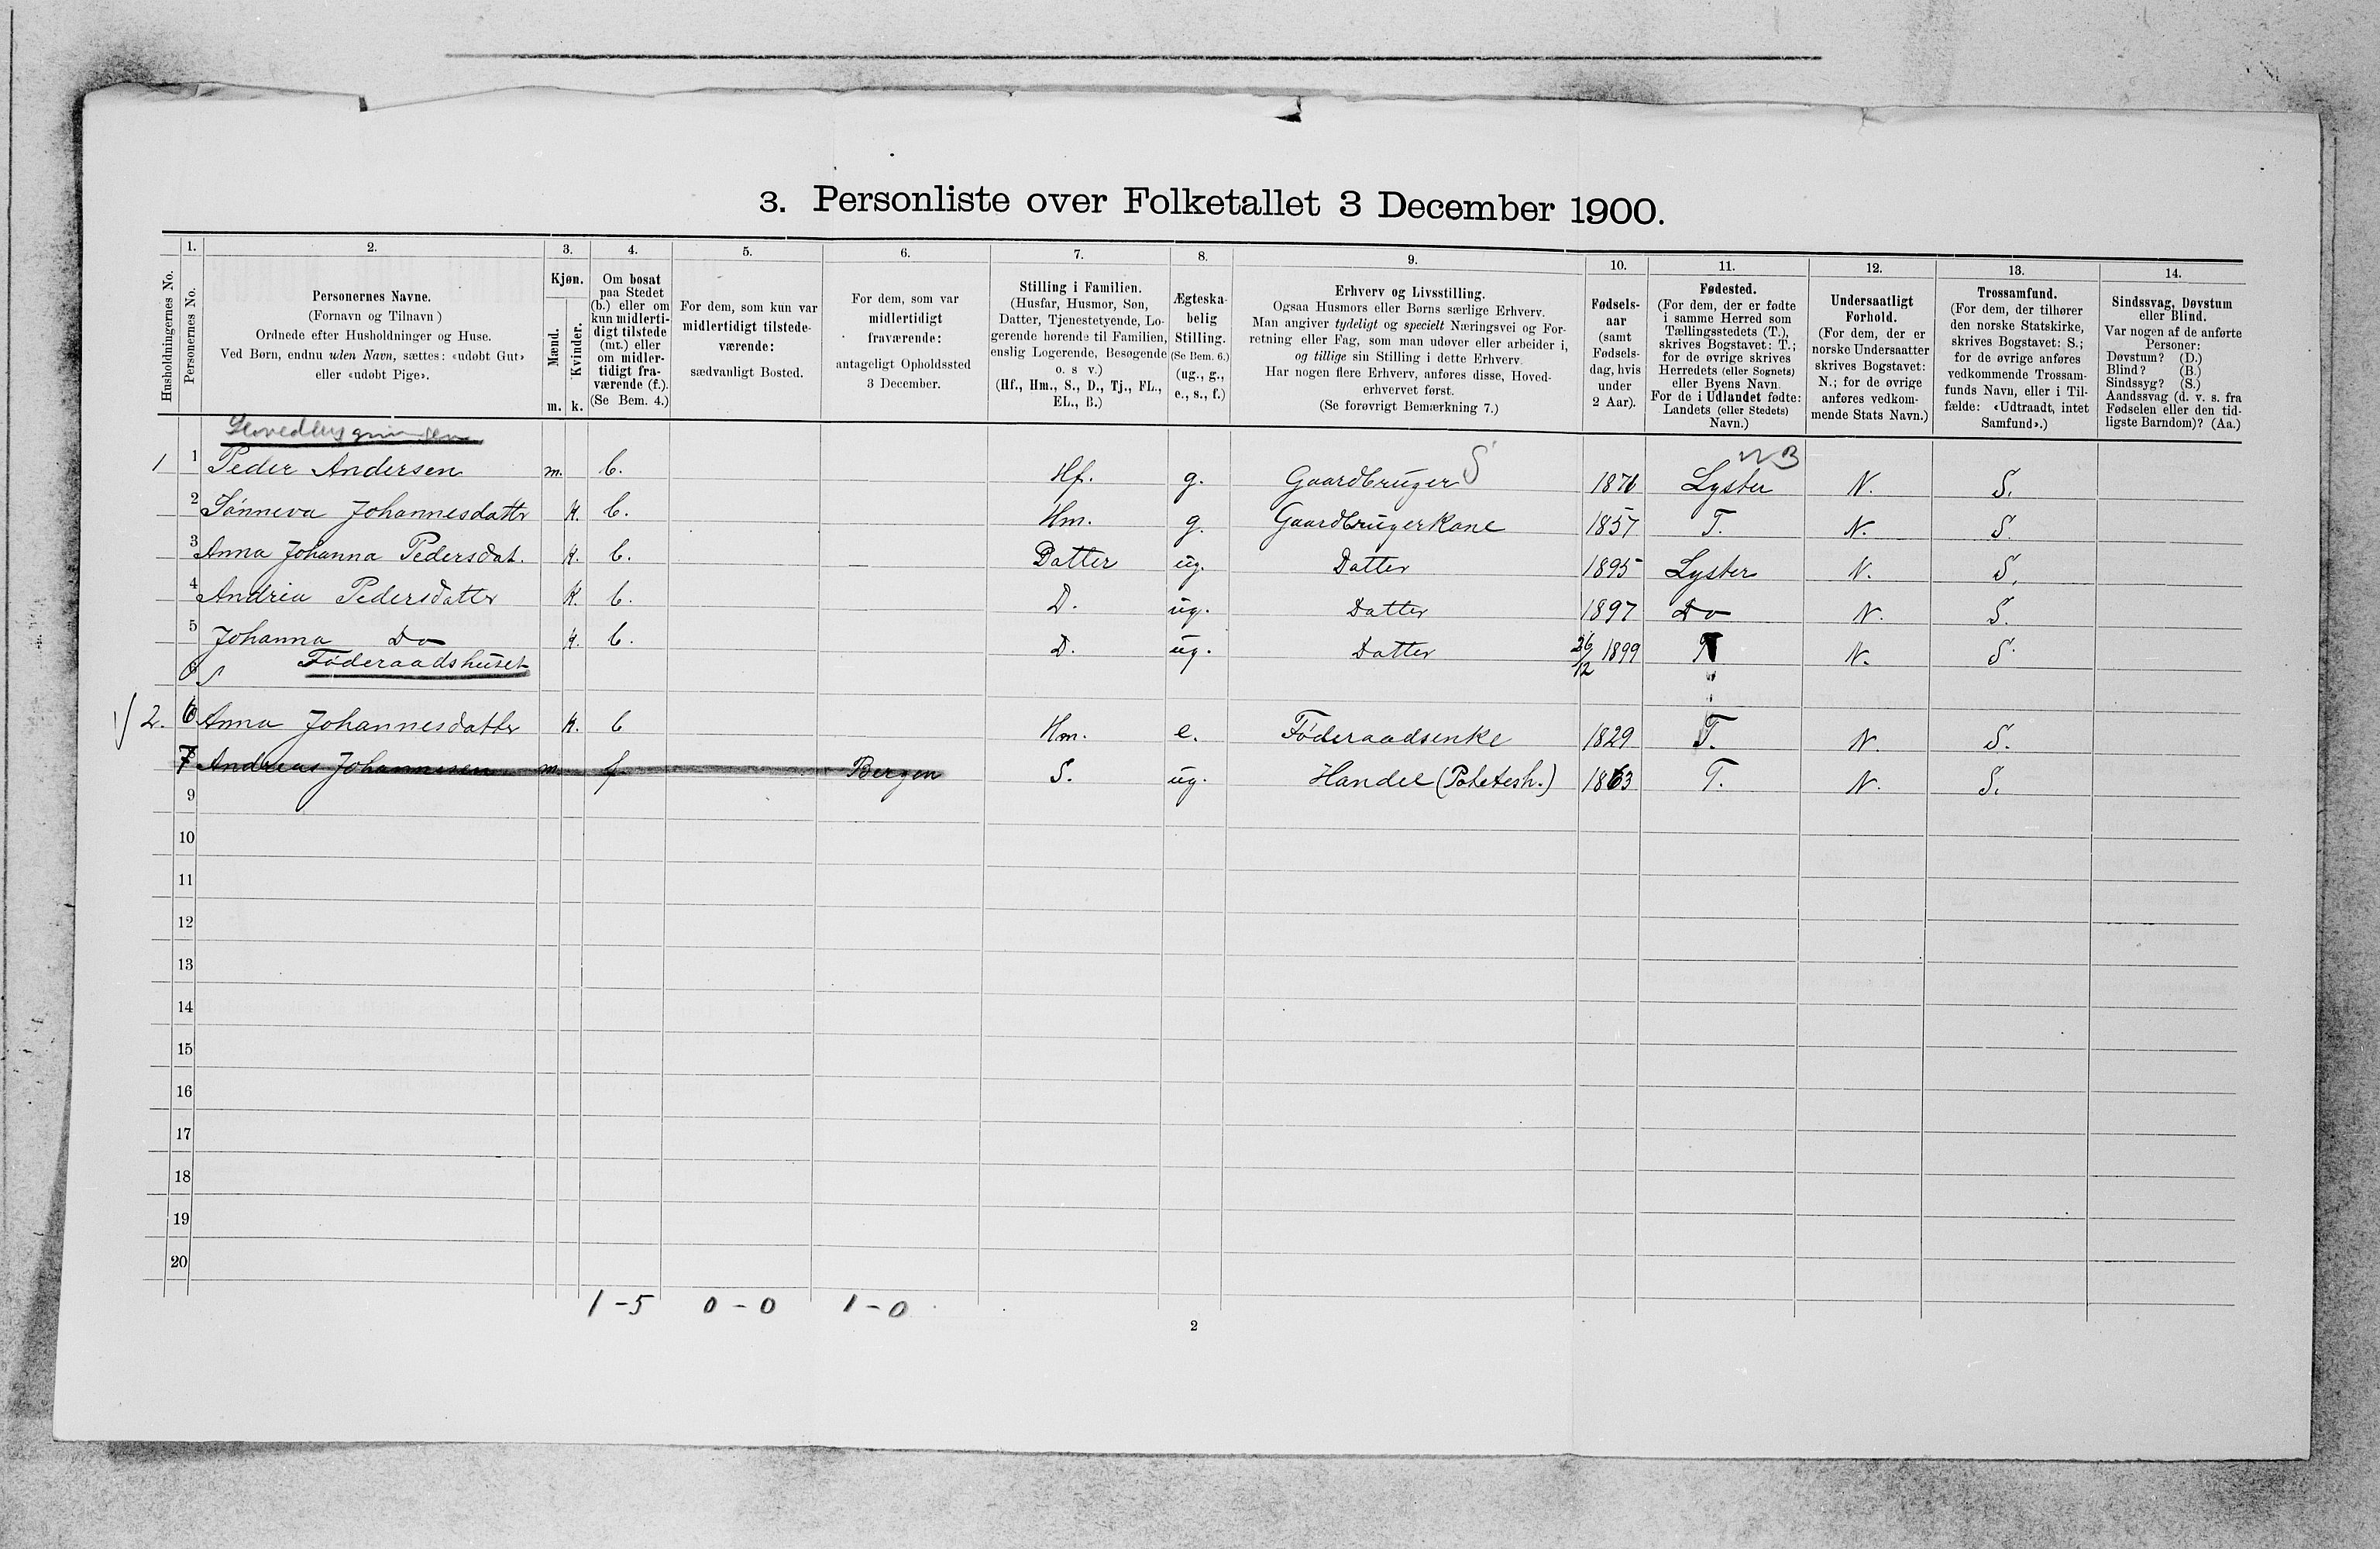 3. Personliste over Folketallet 3 December 1900.
1. 2. 3. 4. 5. 6. 7. 8. 9. 10. 11. 12. 13. 14.
Husholdningernes No.
Personernes No.
Personernes Navne.
(Fornavn og Tilnavn)
Ordnede efter Husholdninger og Huse.
Ved Børn, endnu uden Navn, sættes: «udøbt Gut»
eller «udøbt Pige».
Kjøn.
Mænd.
Kvinder.
m. k.
Om bosat
paa Stedet
(b.) eller om
kun midlerti-
digt tilstede
(mt.) eller
om midler-
tidigt fra-
værende (f.).
(Se Bem. 4.)
For dem, som kun var
midlertidigt tilstede-
værende:
sædvanligt Bosted.
For dem, som var
midlertidigt
fraværende:
antageligt Opholdssted
3 December.
Stilling i Familien.
(Husfar, Husmor, Søn,
Datter, Tjenestetyende, Lo-
gerende hørende til Familien,
enslig Logerende, Besøgende
o. s v.)
(Hf., Hm., S., D., Tj., FL.,
EL., B.)
Ægteska-
belig
Stilling.
(Se Bem. 6.)
(ug., g.,
e., s., f.)
Erhverv og Livsstilling.
Ogsaa Husmors eller Børns særlige Erhverv.
Man angiver tydeligt og specielt Næringsvei og For-
retning eller Fag, som man udøver eller arbeider i,
og tillige sin Stilling i dette Erhverv.
Har nogen flere Erhverv, anføres disse, Hoved-
erhvervet først.
(Se forøvrigt Bemærkning 7.)
Fødsels-
aar
(samt
Fødsels-
dag, hvis
under
2 Aar).
Fødested.
(For dem, der er fødte
i samme Herred som
Tællingsstedets (T.),
skrives Bogstavet: T.;
for de øvrige skrives
Herredets (eller Sognets)
eller Byens Navn.
For de i Udlandet fødte:
Landets (eller Stedets)
Navn.)
Undersaatligt
Forhold.
(For dem, der er
norske Undersaatter
skrives Bogstavet:
N.; for de øvrige
anføres vedkom-
mende Stats Navn.)
Trossamfund.
(For dem, der tilhører
den norske Statskirke,
skrives Bogstavet: S.;
for de øvrige anføres
vedkommende Trossam-
funds Navn, eller i Til-
fælde: «Udtraadt, intet
Samfund».)
Sindssvag, Døvstum
eller Blind.
Var nogen af de anførte
Personer:
Døvstum? (D.)
Blind? (B.)
Sindssyg? (S.)
Aandssvag (d. v. s. fra
Fødselen eller den tid-
ligste Barndom)? (Aa.)
1 1 Peder Andersen m. b. Hf. g. Gaardbruger S 1870 Lyster N. S.
2 Sønneva Johannesdattr k. b. Hm. g. Gaardbrugerkone 1857 T. N. S.
3 Anna Johanna Pedersdat. k. b. — Datter ug. Datter 1895 Lyster N. S.
4 Andrea Pedersdattr k. b. D. ug. Datter 1897 Do N. S.
5 Johanna Do k. b. D. ug. Datter 26/12 1899 T N. S.
Føderaadshuset
2. 6 Anna Johannesdattr k. b Hm. e. Føderaadsenke 1829 T. N. S.
7 Andreas Johannesen m. f Bergen S. ug. Handel (Potetesh.) 1863 T. N. S.
9
10
11
12
13
14
15
16
17
18
19
20
1 - 5 0 - 0 1 - 0
2